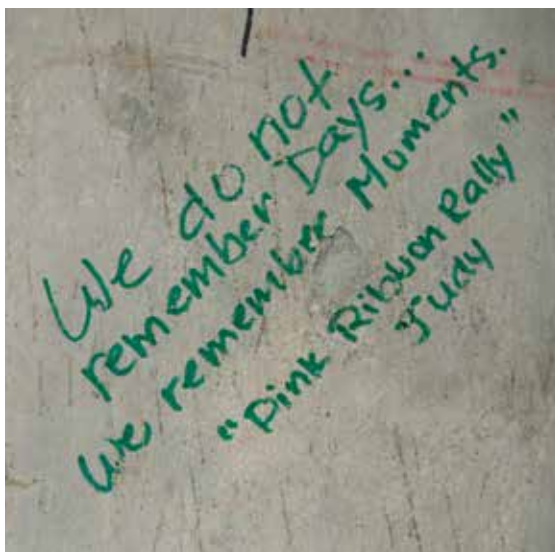 We do not
remember Days...
We remember Moments.
"Pink Ribbon Rally"
Judy